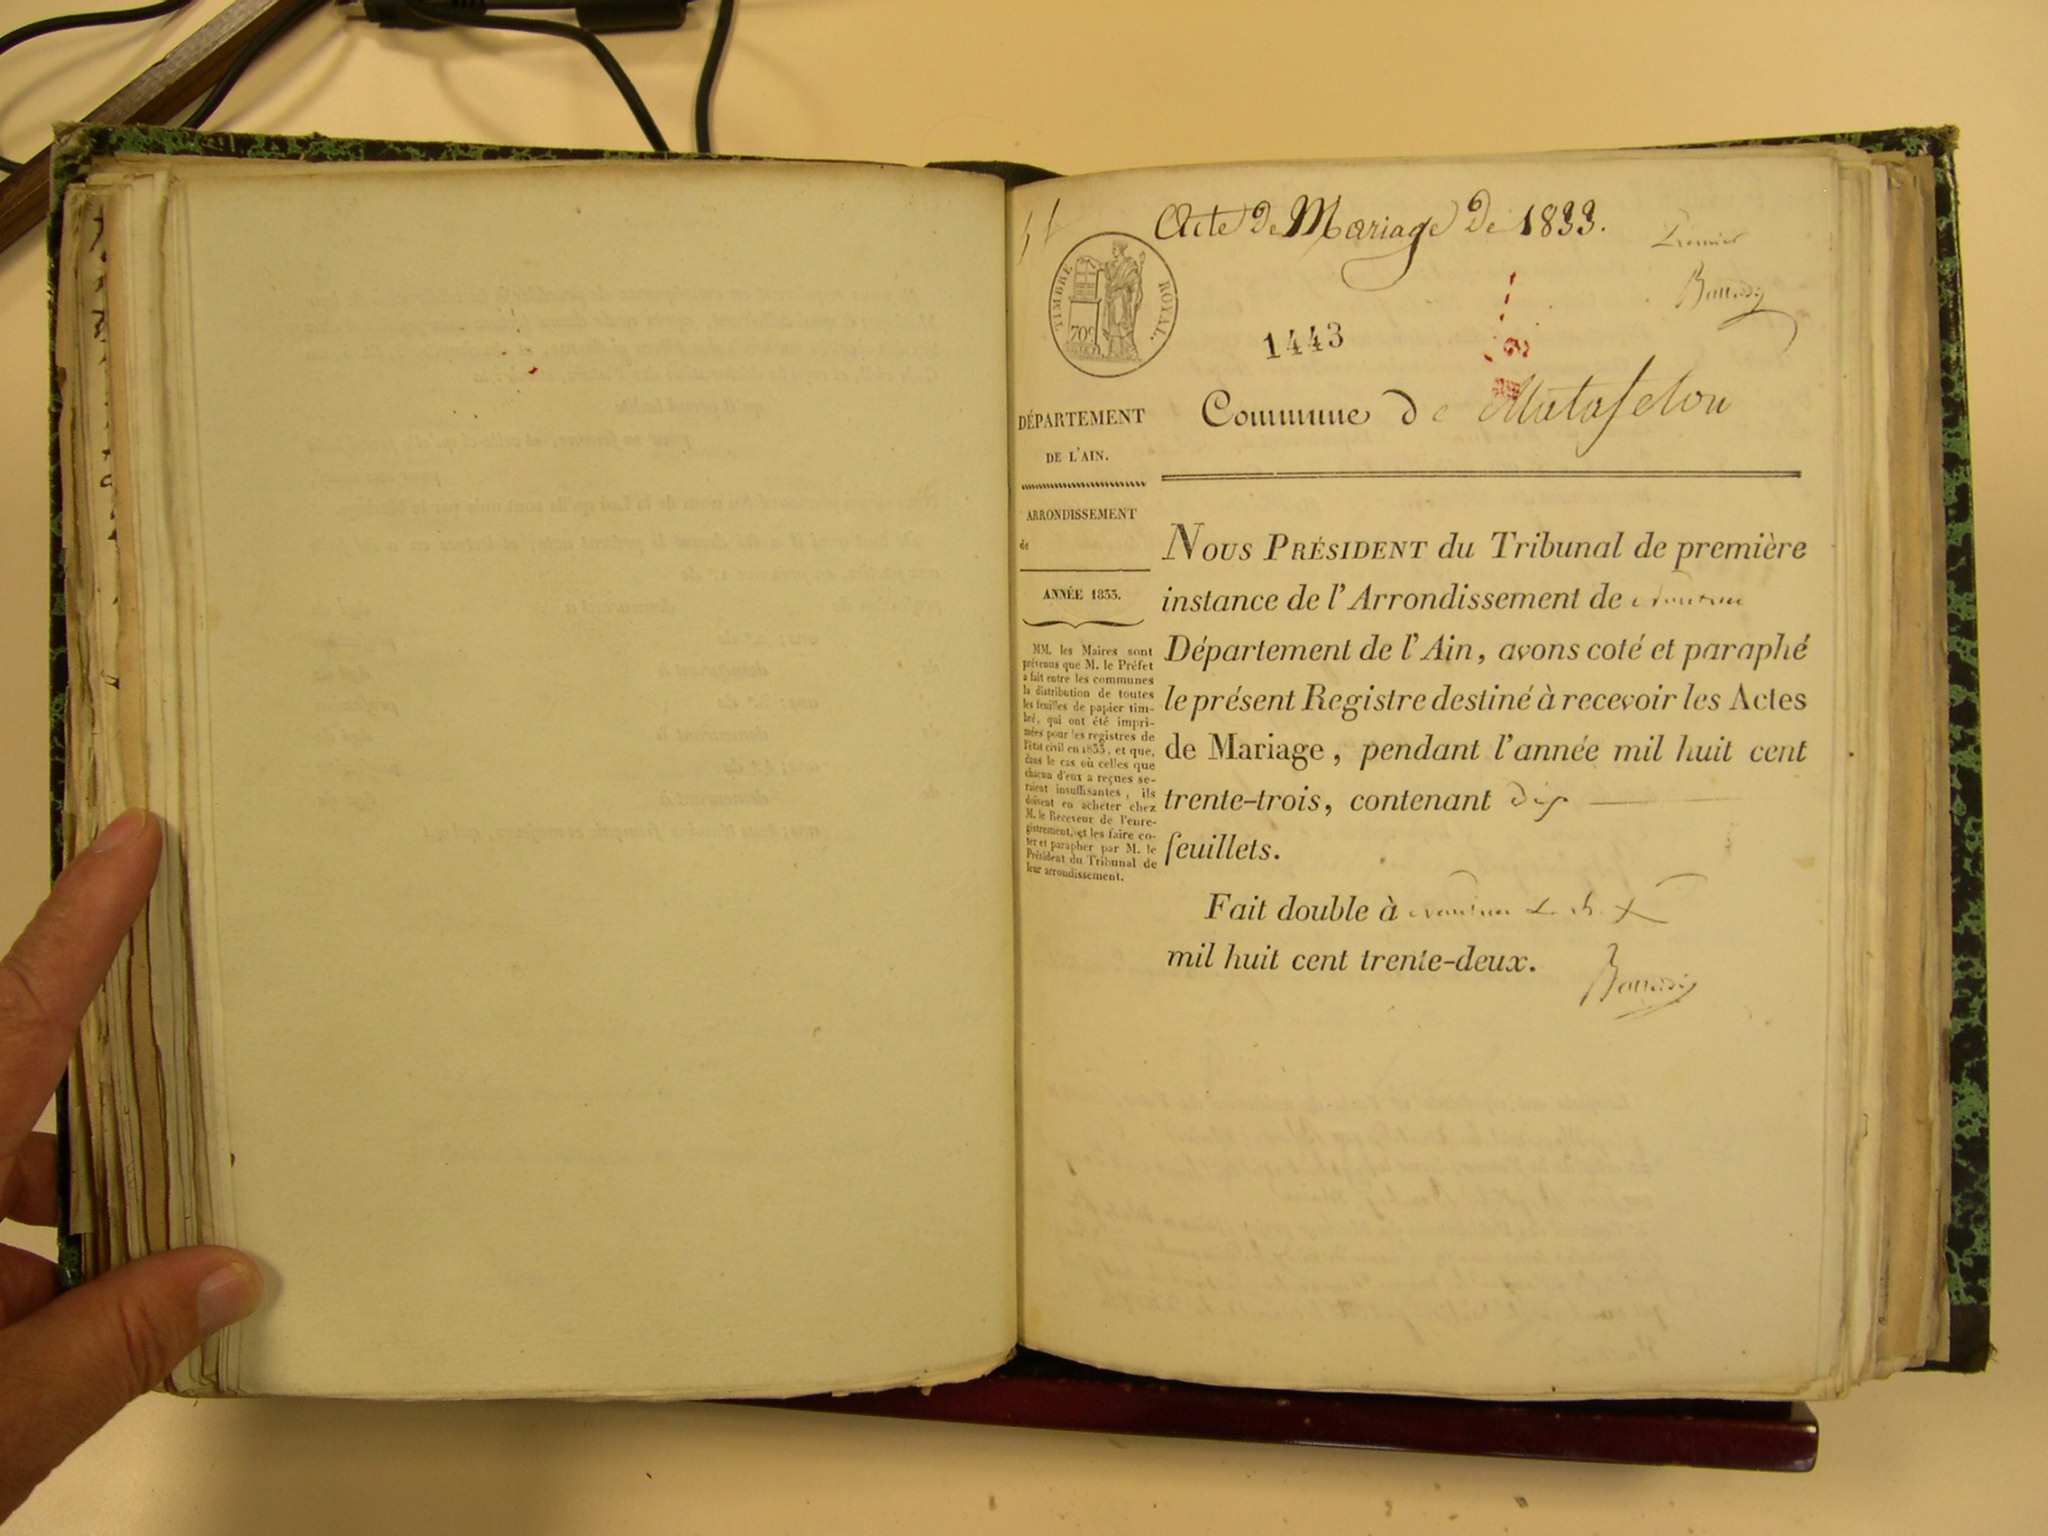 Acte De Mariage De 1833.
Premier
TIMBRE ROYAL.
70c
1443
Commune de Matafelon
DÉPARTEMENT
DE L'AIN.
ARRONDISSEMENT
de
ANNÉE 1833.
MM. les Maires sont
prévenus que M. le Préfet
a fait entre les communes
la distribution de toutes
les feuilles de papier tim-
bré, qui ont été impri-
mées pour les registres de
l'état civil en 1833, et que,
dans le cas où celles que
chacun d'eux a reçues se-
raient insuffisantes, ils
doivent en acheter chez
M. le Receveur de l'enre-
gistrement, et les faire co-
ter et parapher par M. le
Président du Tribunal de
leur arrondissement.
NOUS PRÉSIDENT du Tribunal de première
instance de l'Arrondissement de Nantua
Département de l'Ain, avons coté et paraphé
le présent Registre destiné à recevoir les Actes
de Mariage, pendant l'année mil huit cent
trente-trois, contenant dix
feuillets.
Fait double à Nantua
mil huit cent trente-deux.